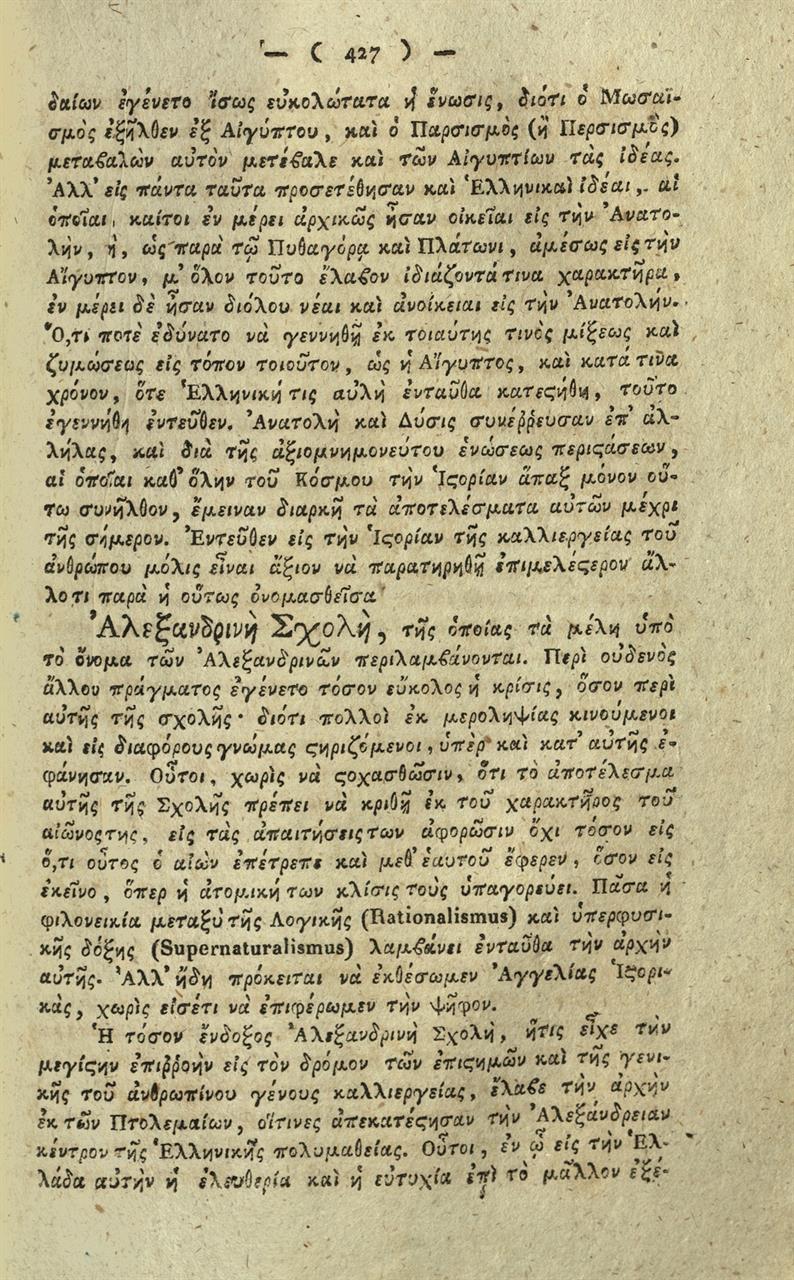 — ( 427 ) —
δαίων ἐγένετο ἴσως εὐκολώτατα ἡ ἕνωσις, διότι ὁ Μωσαϊ-
σμὸς ἐξῆλθεν ἐξ Αἰγύπτου, καὶ ὁ Παρσισμὸς (ἢ Περσισμὸς)
μεταβαλὼν αὐτὸν μετέβαλε καὶ τῶν Αἰγυπτίων τὰς ἰδέας.
Ἀλλ' εἰς πάντα ταῦτα προσετέθησαν καὶ Ἑλληνικαὶ ἰδέαι, αἱ
ὁποῖαι, καίτοι ἐν μέρει ἀρχικῶς ἦσαν οἰκεῖαι εἰς τὴν Ἀνατο-
λὴν, ἢ, ὡς παρὰ τῷ Πυθαγόρᾳ καὶ Πλάτωνι, ἀμέσως εἰς τὴν
Αἴγυπτον, μ' ὅλον τοῦτο ἔλαβον ἰδιάζοντά τινα χαρακτῆρα,
ἐν μέρει δὲ ἦσαν διόλου νέαι καὶ ἀνοίκειαι εἰς τὴν Ἀνατολήν.
Ὅ,τι ποτὲ ἐδύνατο νὰ γεννηθῇ ἐκ τοιαύτης τινὸς μίξεως καὶ
ζυμώσεως εἰς τόπον τοιοῦτον, ὡς ἡ Αἴγυπτος, καὶ κατά τινα
χρόνον, ὅτε Ἑλληνική τις αὐλὴ ἐνταῦθα κατεϛήθη, τοῦτο
ἐγεννήθη ἐντεῦθεν. Ἀνατολὴ καὶ Δύσις συνέῤῥευσαν ἐπ' ἀλ-
λήλας, καὶ διὰ τῆς ἀξιομνημονεύτου ἑνώσεως περιϛάσεων,
αἱ ὁποῖαι καθ' ὅλην τοῦ Κόσμου τὴν Ἱϛορίαν ἅπαξ μόνον οὕ-
τω συνῆλθον, ἔμειναν διαρκῆ τὰ ἀποτελέσματα αὐτῶν μέχρι
τῆς σήμερον. Ἐντεῦθεν εἰς τὴν Ἱϛορίαν τῆς καλλιεργείας τοῦ
ἀνθρώπου μόλις εἶναι ἄξιον νὰ παρατηρηθῇ ἐπιμελέϛερον ἄλ-
λο τι παρὰ ἡ οὕτως ὀνομασθεῖσα
Ἀλεξανδρινὴ Σχολὴ, τῆς ὁποίας τὰ μέλη ὑπὸ
τὸ ὄνομα τῶν Ἀλεξανδρινῶν περιλαμβάνονται. Περὶ οὐδενὸς
ἄλλου πράγματος ἐγένετο τόσον εὔκολος ἡ κρίσις, ὅσον περὶ
αὐτῆς τῆς σχολῆς· διότι πολλοὶ ἐκ μεροληψίας κινούμενοι
καὶ εἰς διαφόρους γνώμας ϛηριζόμενοι, ὑπὲρ καὶ κατ' αὐτῆς ἐ-
φάνησαν. Οὗτοι, χωρὶς νὰ ϛοχασθῶσιν, ὅτι τὸ ἀποτέλεσμα
αὐτῆς τῆς Σχολῆς πρέπει νὰ κριθῇ ἐκ τοῦ χαρακτῆρος τοῦ
αἰῶνος της, εἰς τὰς ἀπαιτήσεις των ἀφορῶσιν ὄχι τόσον εἰς
ὅ,τι οὗτος ὁ αἰὼν ἐπέτρεπε καὶ μεθ' ἑαυτοῦ ἔφερεν, ὅσον εἰς
ἐκεῖνο, ὅπερ ἡ ἀτομική των κλίσις τοὺς ὑπαγορεύει. Πᾶσα ἡ
φιλονεικία μεταξὺ τῆς Λογικῆς (Rationalismus) καὶ ὑπερφυσι-
κῆς δόξης (Supernaturalismus) λαμβάνει ἐνταῦθα τὴν ἀρχὴν
αὐτῆς. Ἀλλ' ἤδη πρόκειται νὰ ἐκθέσωμεν Ἀγγελίας Ἱϛορι-
κὰς, χωρὶς εἰσέτι νὰ ἐπιφέρωμεν τὴν ψῆφον.
Ἡ τόσον ἔνδοξος Ἀλεξανδρινὴ Σχολὴ, ἥτις εἶχε τὴν
μεγίϛην ἐπιῤῥοὴν εἰς τὸν δρόμον τῶν ἐπιϛημῶν καὶ τῆς γενι-
κῆς τοῦ ἀνθρωπίνου γένους καλλιεργείας, ἔλαβε τὴν ἀρχὴν
ἐκ τῶν Πτολεμαίων, οἵτινες ἀπεκατέϛησαν τὴν Ἀλεξάνδρειαν
κέντρον τῆς Ἑλληνικῆς πολυμαθείας. Οὗτοι, ἐν ᾧ εἰς τὴν Ἑλ-
λάδα αὐτὴν ἡ ἐλευθερία καὶ ἡ εὐτυχία ἐπὶ τὸ μᾶλλον ἐξέ-